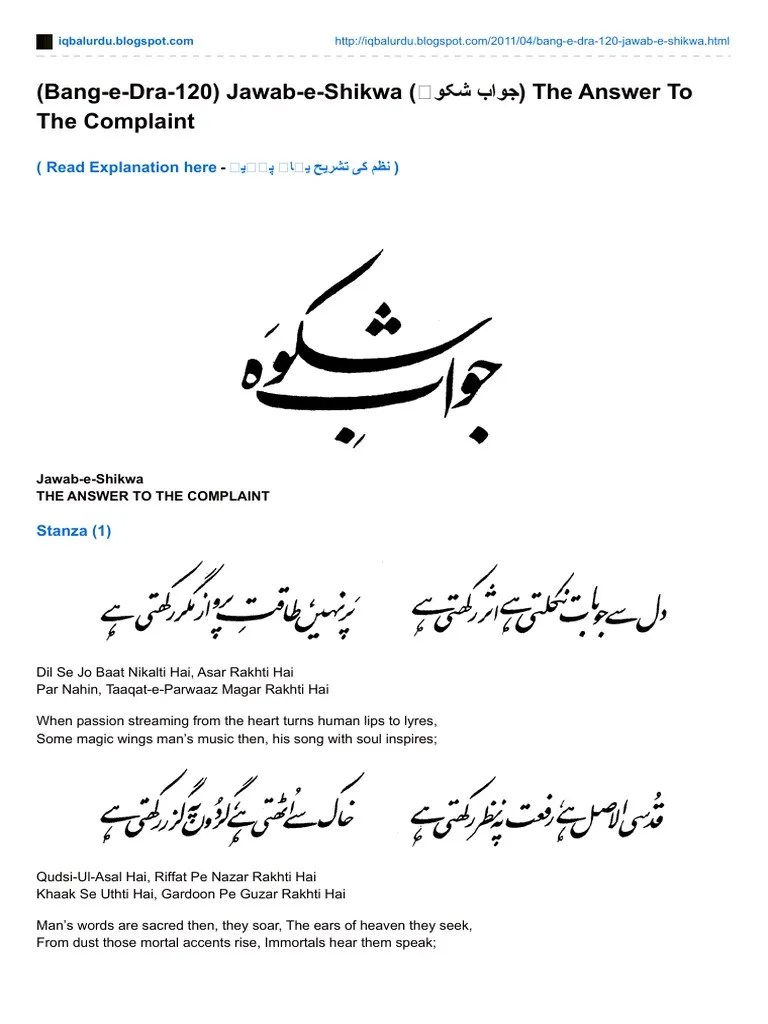 iqbalurdu.blogspot.com http://iqbalurdu.blogspot.com/2011/04/bang-e-dra-120-jawab-e-shikwa.html
(Bang-e-Dra-120) Jawab-e-Shikwa (جواب شکو) The Answer To
The Complaint
( Read Explanation here - نظم کی تشریح )
جوابِ شکوَہ
Jawab-e-Shikwa
THE ANSWER TO THE COMPLAINT
Stanza (1)
دل سے جو بات نکلتی ہے اثر رکھتی ہے پَر نہیں، طاقتِ پرواز مگر رکھتی ہے
Dil Se Jo Baat Nikalti Hai, Asar Rakhti Hai
Par Nahin, Taaqat-e-Parwaaz Magar Rakhti Hai
When passion streaming from the heart turns human lips to lyres,
Some magic wings man’s music then, his song with soul inspires;
قُدسی الاصل ہے، رفعت پہ نظر رکھتی ہے خاک سے اُٹھتی ہے، گردُوں پہ گزر رکھتی ہے
Qudsi-Ul-Asal Hai, Riffat Pe Nazar Rakhti Hai
Khaak Se Uthti Hai, Gardoon Pe Guzar Rakhti Hai
Man’s words are sacred then, they soar, The ears of heaven they seek,
From dust those mortal accents rise, Immortals hear them speak;